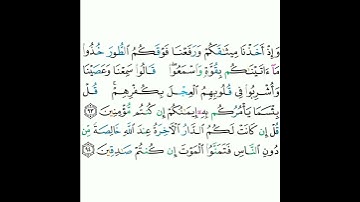 وَإِذْ أَخَذْنَا مِيثَٰقَكُمْ وَرَفَعْنَا فَوْقَكُمُ ٱلطُّورَ خُذُوا۟
مَآ ءَاتَيْنَٰكُم بِقُوَّةٍ وَٱسْمَعُوا۟ ۖ قَالُوا۟ سَمِعْنَا وَعَصَيْنَا
وَأُشْرِبُوا۟ فِى قُلُوبِهِمُ ٱلْعِجْلَ بِكُفْرِهِمْ ۚ قُلْ
بِئْسَمَا يَأْمُرُكُم بِهِۦٓ إِيمَٰنُكُمْ إِن كُنتُم مُّؤْمِنِينَ ٩٣
قُلْ إِن كَانَتْ لَكُمُ ٱلدَّارُ ٱلْـَٔاخِرَةُ عِندَ ٱللَّهِ خَالِصَةً مِّن
دُونِ ٱلنَّاسِ فَتَمَنَّوُا۟ ٱلْمَوْتَ إِن كُنتُمْ صَٰدِقِينَ ٩٤